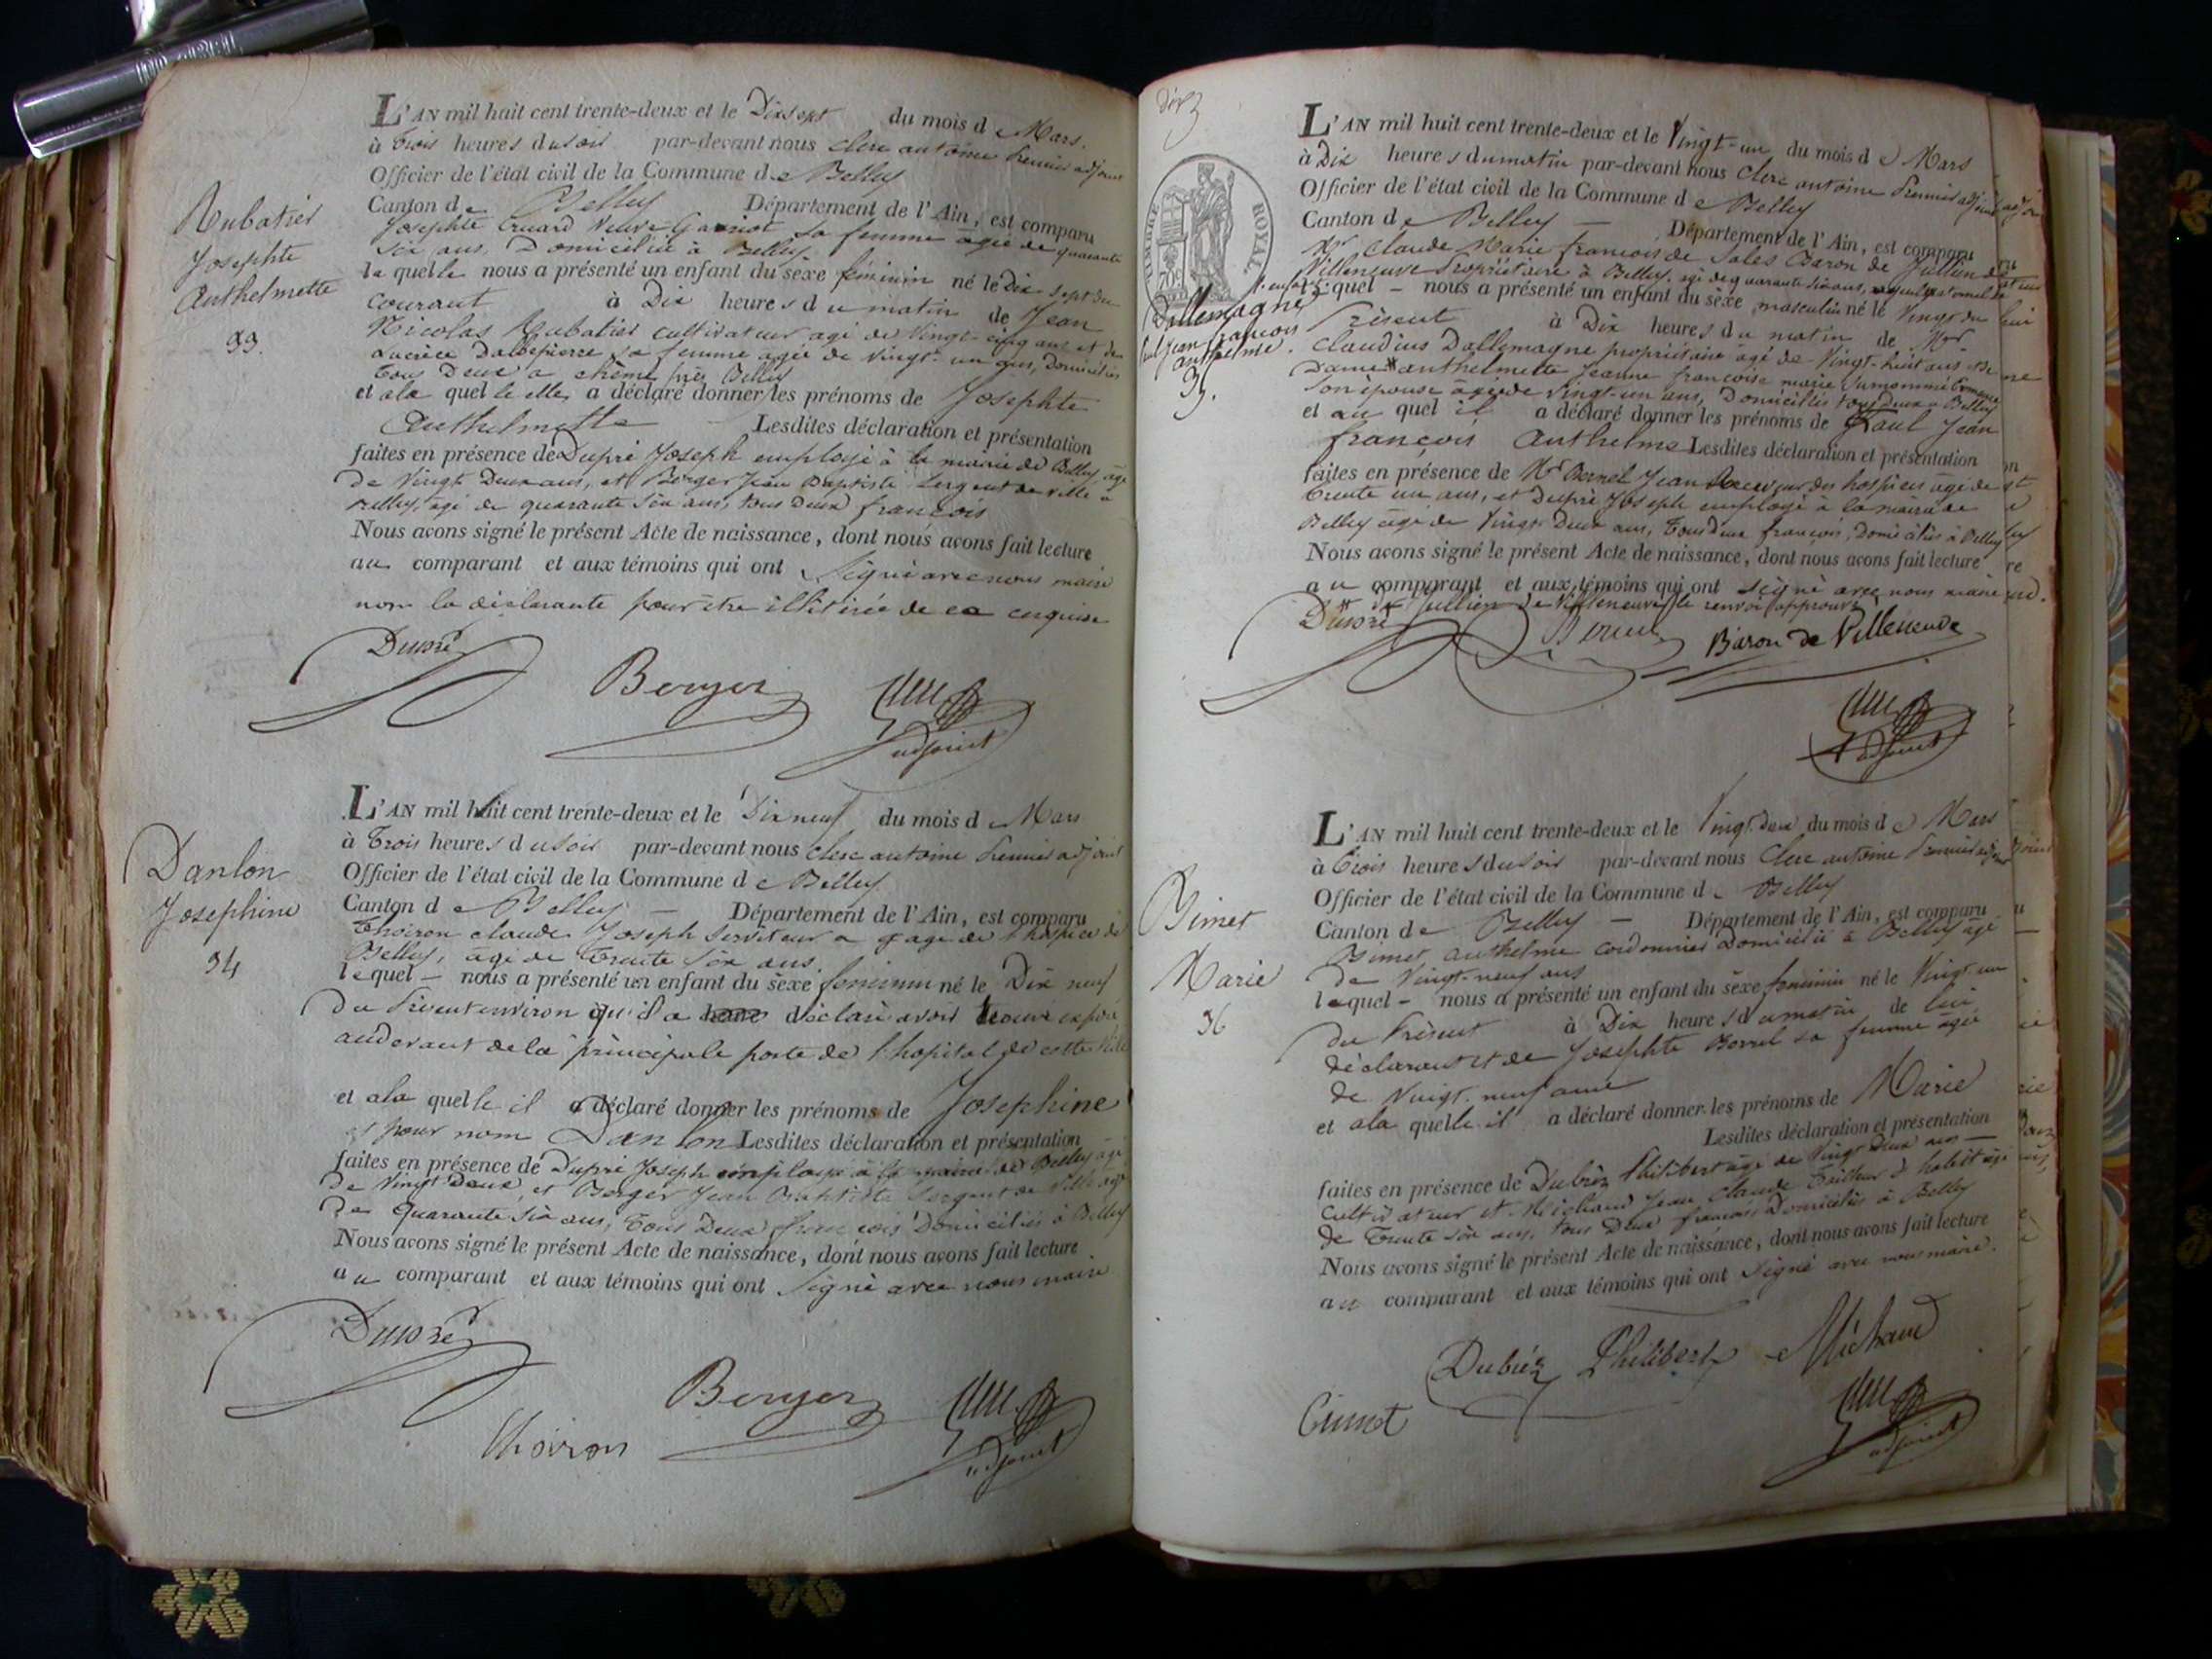 L'AN mil huit cent trente-deux et le Dix sept du mois de Mars.
à Trois heures du soir par-devant nous Clerc antoine Premier adjoint
Officier de l'état civil de la Commune de Belley
Canton de Belley Département de l'Ain, est comparu
Josephte Veuve sa femme agée de quarante
six ans, Domiciliée à Belley
la quelle nous a présenté un enfant du sèxe féminin né le Dix sept du
courant à Dix heures du matin de Jean
Nicolas Rubatier cultivateur agé de Vingt-cinq ans et de
Lucrèce Dallepierre sa femme agée de vingt-un ans, Domiciliés
tous Deux a près Belley
et a la quelle elle a déclaré donner les prénoms de Josephte
Anthelmette Lesdites déclaration et présentation
faites en présence de Dupré Joseph employé à la mairie de Belley, agé
de Vingt Deux ans, et Berger Jean Baptiste Sergent de ville à
Belley, agé de quarante six ans, tous Deux françois
Nous avons signé le présent Acte de naissance, dont nous avons fait lecture
au comparant et aux témoins qui ont Signé avec nous maire
non la déclarante pour être illitérée de ce enquise
Rubatier
Josephte
Anthelmette
33.
Dupré
Berger
Clerc
adjoint
L'AN mil huit cent trente-deux et le Dix neuf du mois de Mars
à Trois heures du soir par-devant nous Clerc antoine Premier adjoint
Officier de l'état civil de la Commune de Belley
Canton de Belley Département de l'Ain, est comparu
Thoiron claude Joseph Serviteur a gage de l'hospice de
Belley, agé de Trente Six ans.
lequel nous a présenté un enfant du sèxe feminin né le Dix neuf
du Présent environ qu'il a déclaré avoir trouvé exposé
au devant de la principale porte de l'hopital de cette Ville
et a la quelle il a déclaré donner les prénoms de Josephine
et pour nom Danlon Lesdites déclaration et présentation
faites en présence de Dupré Joseph employé à la mairie de Belley agé
de Vingt Deux, et Berger Jean Baptiste Sergent de Ville agé
De Quarante Six ans, Tous Deux françois Domiciliés à Belley
Nous avons signé le présent Acte de naissance, dont nous avons fait lecture
au comparant et aux témoins qui ont Signé avec nous maire
Danlon
Josephine
34
Dupré
Berger
Thoiron
Clerc
adjoint
TIMBRE ROYAL
70c
L'AN mil huit cent trente-deux et le Vingt-un du mois de Mars
à Dix heures du matin par-devant nous Clerc antoine Premier adjoint
Officier de l'état civil de la Commune de Belley
Canton de Belley Département de l'Ain, est comparu
Mr Claude Marie françois de Sales Baron de Jullien de
Villeneuve Propriétaire à Belley, agé de quarante six ans,
lequel nous a présenté un enfant du sèxe masculin né le Vingt du
Présent à Dix heures du matin de Mr
Claudius Dallemagne propriétaire agé de Vingt-huit ans et de
Dame anthelmette Jeanne françoise marie
Son épouse agée de Vingt-un ans, Domiciliés tous Deux a Belley
et au quel il a déclaré donner les prénoms de Paul Jean
françois Anthelme Lesdites déclaration et présentation
faites en présence de Mr Bornel Jean Receveur des hospices agé de
trente un ans, et Dupré Joseph employé à la mairie de
Belley agé de Vingt Deux ans, Tous Deux françois, Domiciliés à Belley
Nous avons signé le présent Acte de naissance, dont nous avons fait lecture
au comparant et aux témoins qui ont signé avec nous maire
de Jullien de Villeneuve, le renvoi approuvé
Dallemagne
Paul Jean françois
anthelme.
35.
Dupré
Baron de Villeneuve
Clerc
adjoint
L'AN mil huit cent trente-deux et le Vingt-deux du mois de Mars
à Trois heures du soir par-devant nous Clerc antoine Premier adjoint
Officier de l'état civil de la Commune de Belley
Canton de Belley Département de l'Ain, est comparu
Bimet anthelme cordonnier Domicilié à Belley agé
de Vingt-neuf ans
lequel nous a présenté un enfant du sèxe feminin né le Vingt un
du Présent à Dix heures du matin de lui
déclarant et de Josephte Borrel sa femme agée
de Vingt-neuf ans
et a la quelle il a déclaré donner les prénoms de Marie
Lesdites déclaration et présentation
faites en présence de Dubiez Philibert agé de Vingt Deux ans
cultivateur et Michaud Jean Claude Tailleur d'habit agé
de Trente Six ans, tous Deux françois Domiciliés à Belley
Nous avons signé le présent Acte de naissance, dont nous avons fait lecture
au comparant et aux témoins qui ont Signé avec nous maire.
Bimet
Marie
36
Dubiez Philibert Michaud
Clerc
adjoint